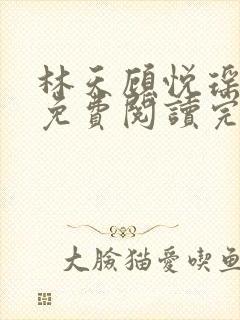 林天顾悦瑶
免費閱讀完
大臉猫愛喫鱼